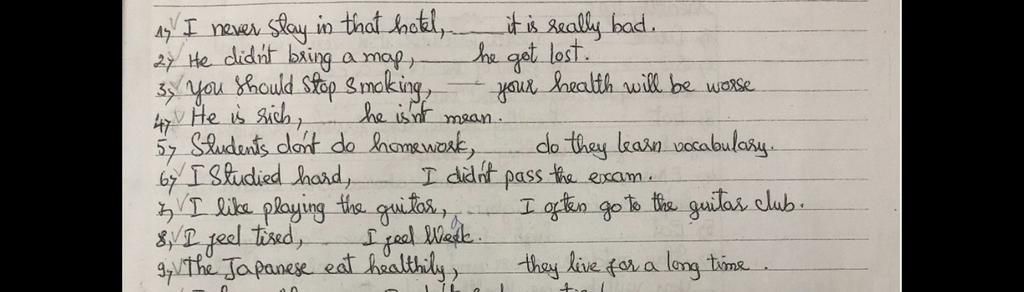 1, I never stay in that hotel, ____ it is really bad.
2, He didn't bring a map, ____ he got lost.
3, You should stop smoking, ____ your health will be worse
4, He is rich, he isn't mean.
5, Students don't do homework, do they learn vocabulary.
6, I studied hard, I didn't pass the exam.
7, I like playing the guitar, I often go to the guitar club.
8, I feel tired, I feel weak.
9, The Japanese eat healthily, they live for a long time.